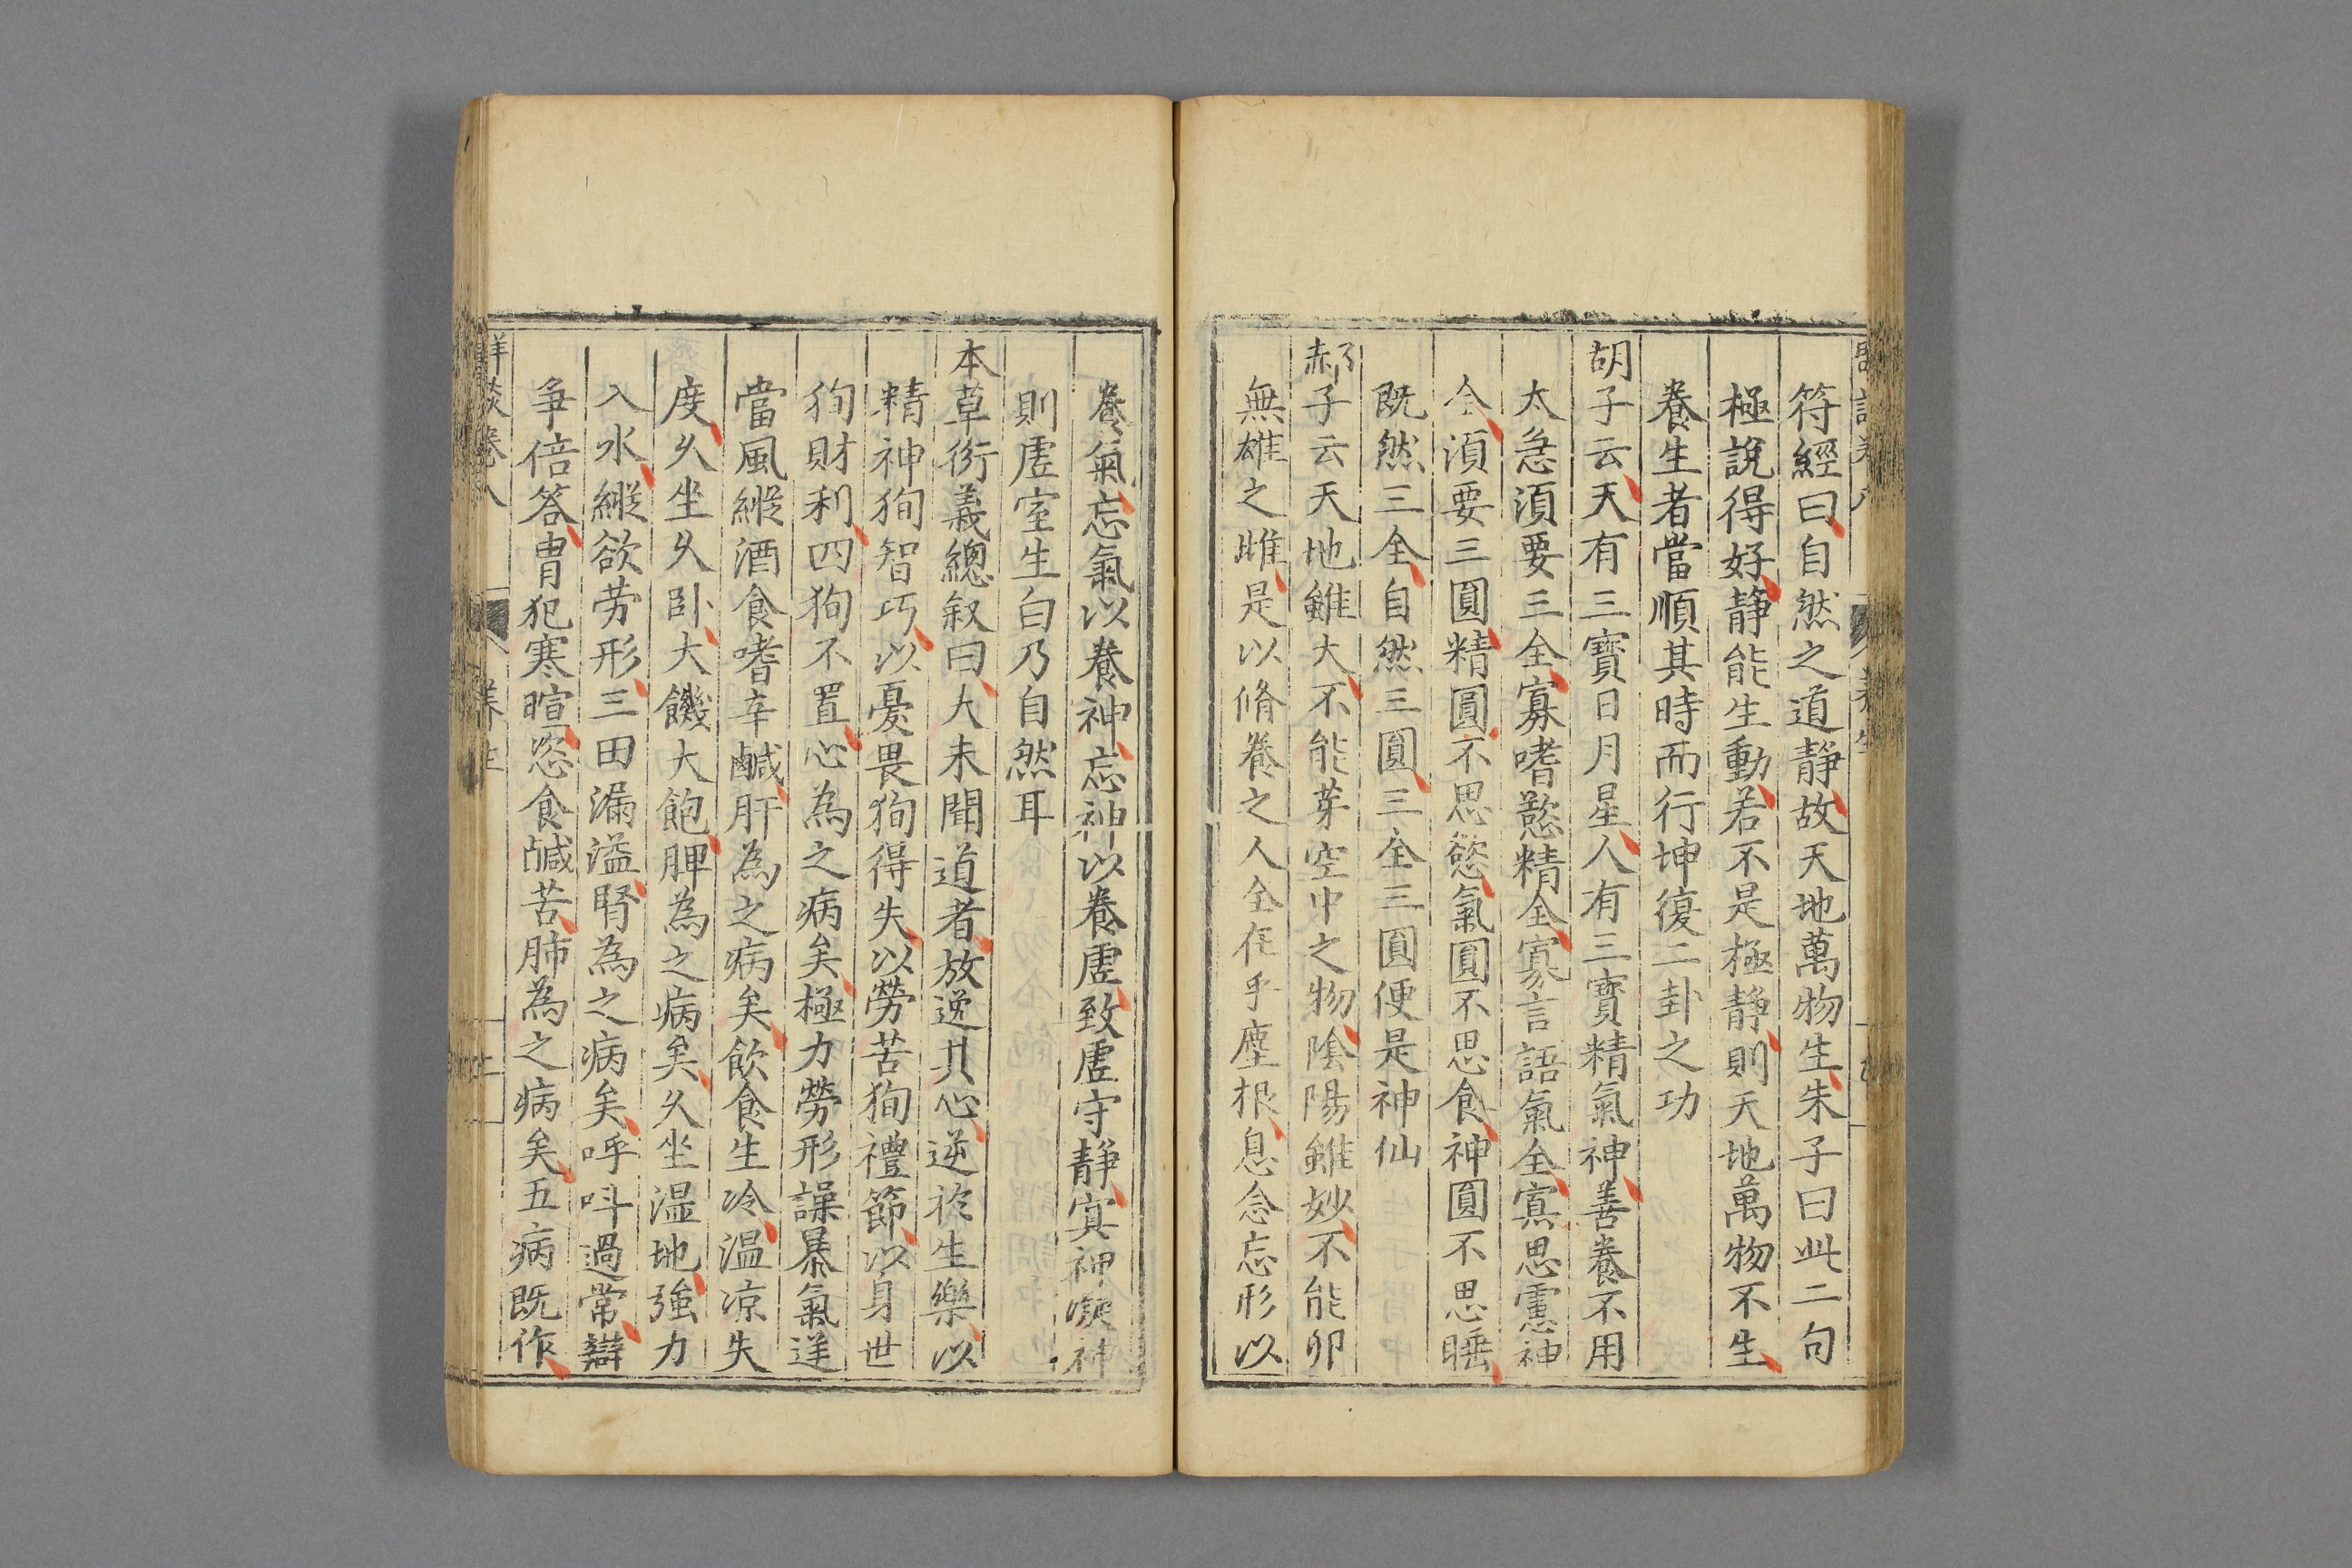 符經曰自然之道靜故天地萬物生朱子曰此二句
極說得好靜能生動若不是極靜則天地萬物不生
養生者當順其時而行坤復二卦之功
胡子云天有三寶日月星人有三寶精氣神善養不用
太急須要三全寡嗜慾精全寡言語氣全寡思慮神
全須要三圓精圓不思慾氣圓不思食神圓不思睡
既然三全自然三圓三全三圓便是神仙
郝子云天地雖大不能芽空中之物陰陽雖妙不能卵
無雄之雌是以脩養之人全在乎塵根息念忘形以
養氣忘氣以養神忘神以養虛致虛守靜寞神凝神
則虛室生白乃自然耳
本草衍義總叙曰大未聞道者放逆其心逆於生樂以
精神狥智巧以憂畏狥得失以勞苦狥禮節以身世
狥財利四狥不置心為之病矣極力勞形譟暴氣逆
當風縱酒食嗜辛鹹肝為之病矣飲食生冷溫凉失
度久坐久卧大饑大飽脾為之病矣久坐湿地強力
入水縱欲劳形三田漏溢腎為之病矣呼呌過常辯
爭倍答冒犯寒暄恣食鹹苦肺為之病矣五病既作
卷八